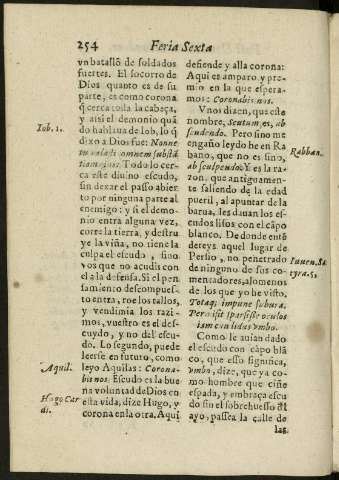 254 Feria Sexta
vn batallõ de soldados
fuertes. El socorro de
Dios quanto es de su
parte, es como corona
q̃ cerca toda la cabeça,
y assi el demonio quã
do hablaua de Iob, lo q̃
dixo a Dios fue: Nonne
tu valasti omnem substã
tiam eius. Todo lo cer-
ca este diuino escudo,
sin dexar el passo abier
to por ninguna parte al
enemigo: y si el demo-
nio entra alguna vez,
corre la tierra, y destru
ye la viña, no tiene la
culpa el escudo, sino
vos que no acudis con
el a la defensa. Si el pen
samiento descompues-
to entra, roe los tallos,
y vendimia los razi-
mos, vuestro es el des-
cuydo, y no del escu-
do. Lo segundo, puede
leerse en futuro, como
leyo Aquilas: Corona-
bis nos. Escudo es la bue
na voluntad de Dios en
esta vida, dize Hugo, y
corona en la otra. Aqui
Iob. 1.
Aquil.
Hugo Car
di.
defiende y alla corona:
Aqui es amparo, y pre-
mio en la que espera-
mos: Coronabis nos.
Vnos dizen, que este
nombre, Scutum, es, ab
scindendo. Pero sino me
engaño leydo he en Ra
bano, que no es sino,
ab sculpendo. Y es la ra-
zon, que antiguamen-
te saliendo de la edad
pueril, al apuntar de la
barua, les dauan los es-
cudos lisos con el cãpo
blanco. De donde entẽ
dereys aquel lugar de
Persio, no penetrado
de ninguno de sus co-
mentadores, alomenos
de los que yo he visto.
Totaq; impune subura.
Permisit sparsisse oculos
iam candidus vmbo.
Como le auian dado
el escudo con cãpo blã
co, que esso significa,
vmbo, dize, que ya co-
mo hombre que ciñe
espada, y embraça escu
do sin el sobrehuesso dl
ayo, passea la calle de
las
Rabban.
Iuuen. Sa
tyra. 5.